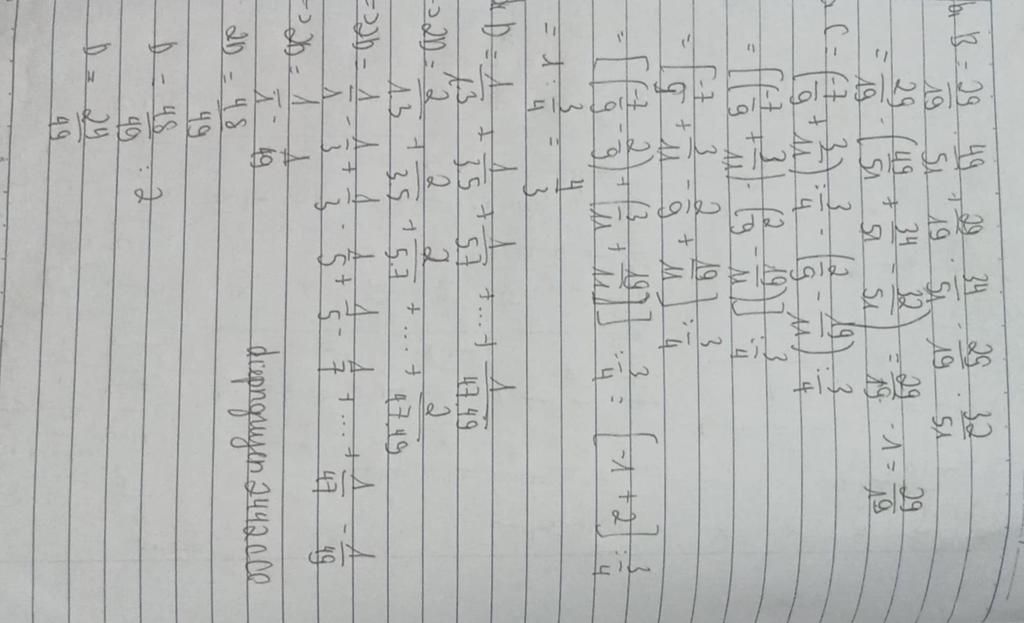 B = 29/19 . 49/51 + 29/19 . 34/51 - 29/19 . 32/51
= 29/19 . (49/51 + 34/51 - 32/51) = 29/19 . 1 = 29/19
C = (-7/9 + 3/11) : 3/4 - (2/9 - 19/11) : 3/4
= [(-7/9 + 3/11) - (2/9 - 19/11)] : 3/4
= [-7/9 + 3/11 - 2/9 + 19/11] : 3/4
= [(-7/9 - 2/9) + (3/11 + 19/11)] : 3/4 = [-1 + 2] : 3/4
= 1 : 3/4 = 4/3
D = 1/1.3 + 1/3.5 + 1/5.7 + ... + 1/47.49
=> 2D = 2/1.3 + 2/3.5 + 2/5.7 + .... + 2/47.49
=> 2D = 1/1 - 1/3 + 1/3 - 1/5 + 1/5 - 1/7 + .... + 1/47 - 1/49
=> 2D = 1/1 - 1/49
2D = 48/49
D = 48/49 : 2
D = 24/49